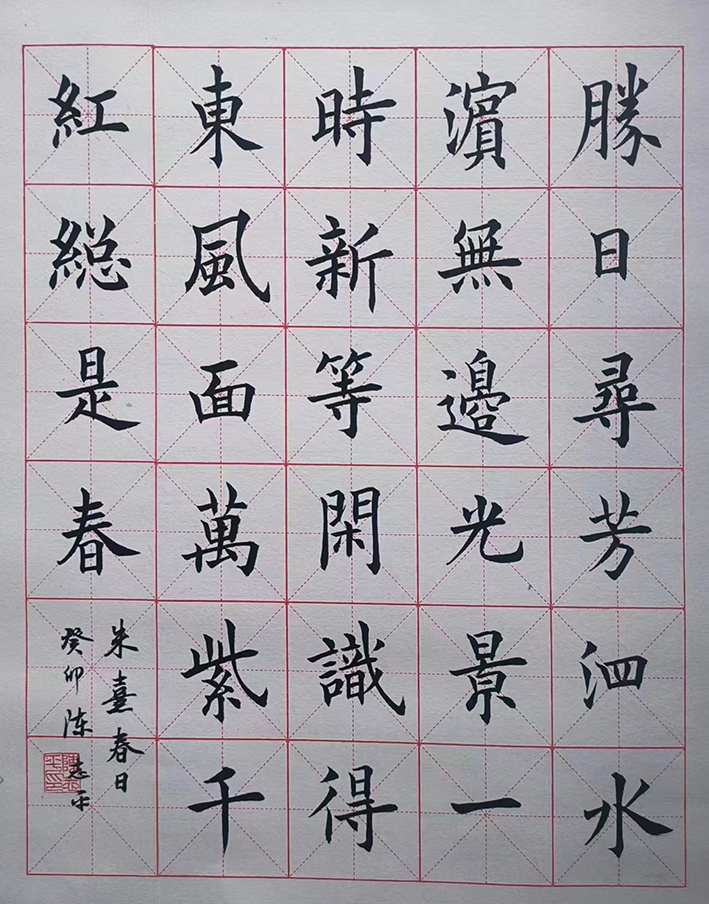 勝日尋芳泗水
濵無邊光景一
時新等閑識得
東風面萬紫千
紅総是春
朱熹春日
癸卯陈志平